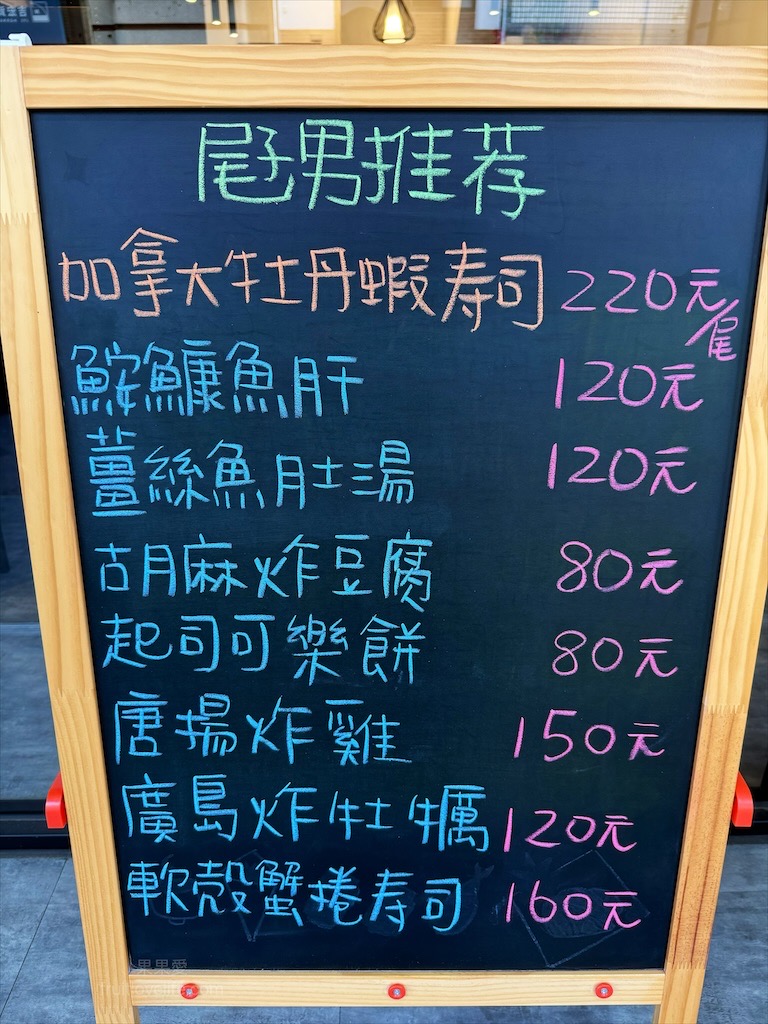 尾男推荐
加拿大牡丹蝦寿司 220元/尾
鮟鱇魚肝 120元
薑絲魚肚湯 120元
胡麻炸豆腐 80元
起司可樂餅 80元
唐揚炸雞 150元
廣島炸牡蠣 120元
軟殼蟹捲寿司 160元
果果愛